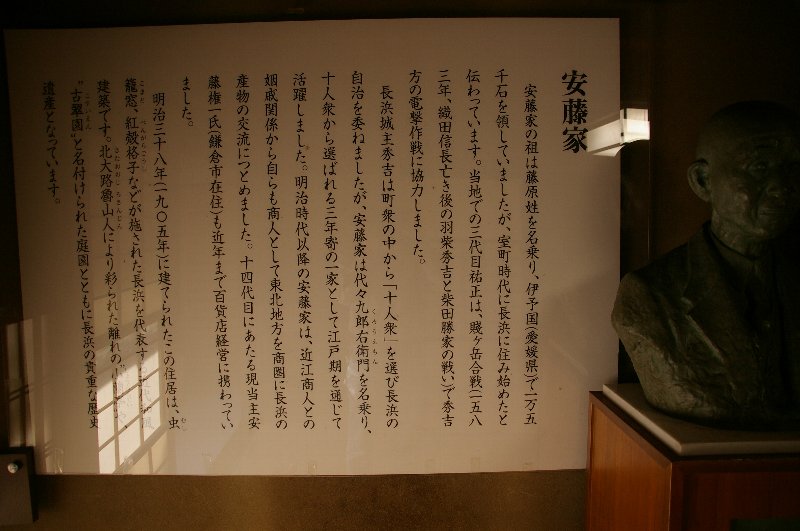 安藤家
安藤家の祖は藤原姓を名乗り、伊予国(愛媛県)で一万五
千石を領していましたが、室町時代に長浜に住み始めたと
伝わっています。当地での三代目祐正は、賤ヶ岳合戦(一五八
三年、織田信長亡き後の羽柴秀吉と柴田勝家の戦い)で秀吉
方の電撃作戦に協力しました。
長浜城主秀吉は町衆の中から「十人衆」を選び長浜の
自治を委ねましたが、安藤家は代々九郎右衛門を名乗り、
十人衆から選ばれる三年寄の一家として江戸期を通じて
活躍しました。明治時代以降の安藤家は、近江商人との
姻戚関係から自らも商人として東北地方を商圏に長浜の
産物の交流につとめました。十四代目にあたる現当主安
藤権一氏(鎌倉市在住)も近年まで百貨店経営に携わってい
ました。
明治三十八年(一九〇五年)に建てられたこの住居は、虫
籠窓、紅殻格子などが施された長浜を代表す
建築です。北大路魯山人により彩られた離れの
"古翠園"と名付けられた庭園とともに長浜の貴重な歴史
遺産となっています。